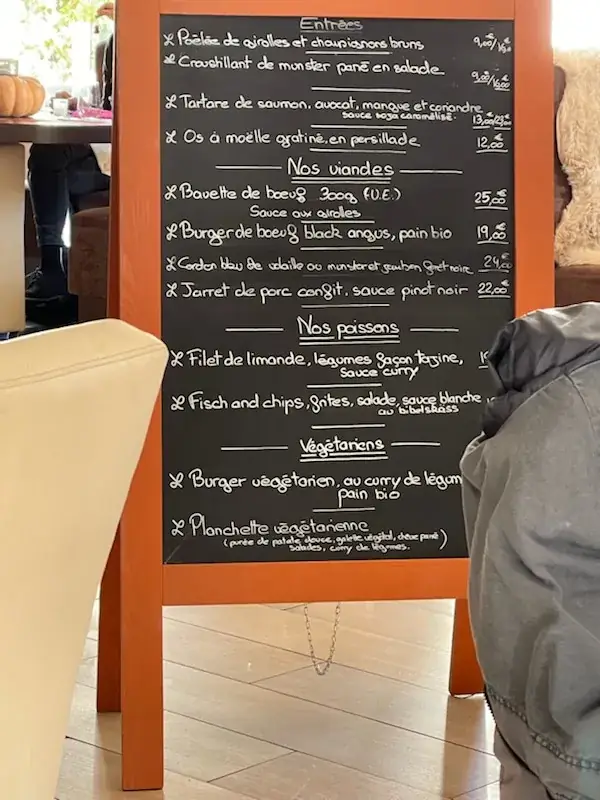 Entrées
Poêlée de girolles et champignons bruns 9,00/
Croustillant de munster pané en salade 9,00/
Tartare de saumon, avocat, mangue et coriandre
sauce soja caramélisé. 13,00/
Os à moëlle gratiné, en persillade 12,00€
Nos viandes
Bavette de boeuf 300g (U.E.) 25,00€
Sauce aux girolles
Burger de boeuf black angus, pain bio 19,00€
Cordon bleu de volaille au munster et jambon forêt noire 24,00€
Jarret de porc confit, sauce pinot noir 22,00€
Nos poissons
Filet de limande, légumes façon tajine,
sauce curry
Fisch and chips, frites, salade, sauce blanche
au bibelskäss
Végétariens
Burger végétarien, au curry de légum
pain bio
Planchette végétarienne
(purée de patate douce, galette végétal, chèvre pané)
salades, curry de légumes.